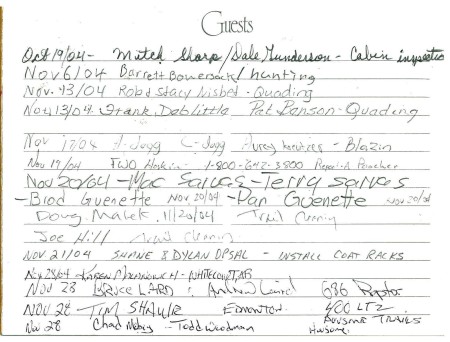 Guests
Oct 19/04 - Mitch Sharp/Dale Gunderson - Cabin inspection
Nov 6/04 Barrett Bowersock/hunting
Nov. 13/04 Rob & Stacy Nisbet - Quading
Nov 13/04. Frank, Deb Little Pat Benson - Quading
Nov 17/04 - Blazin
Nov 19/04 TWO 1-800-642-3800
Nov 20/04 - Mac Sarvas - Terry Sarvas
- Brod Guenette Nov 20/04 - Dan Guenette Nov 20/04
Doug Malek, 11/20/04 Trail Clearing
Joe Hill Trail Clearing
NOV 21/04 SHANE & DYLAN OPSAL - INSTALL COAT RACKS
Nov 28/04 - Karen - WHITECOURT, AB
Nov 28 Bruce LAIRD & Andrew Laird 686 Raptor
NOV 28 TIM Edmonton 400 LTZ
Nov 28 Chad Todd Woodman Awsome TRAILS